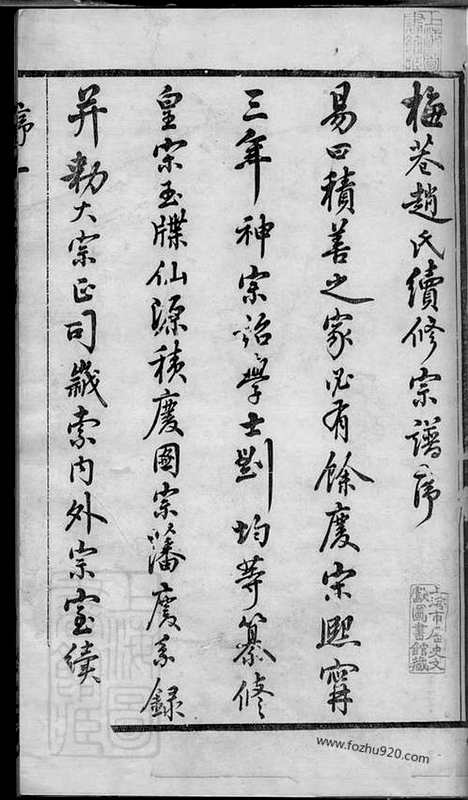 梅巷趙氏續修宗譜序
易曰積善之家必有餘慶宋熙寧
三年神宗詔學士劉均等纂修
皇宗玉牒仙源積慶圖宗藩慶系錄
并勅大宗正司歲索內外宗室續
序 一
上海市歷史文
獻圖書館藏
www.fozhu920.com